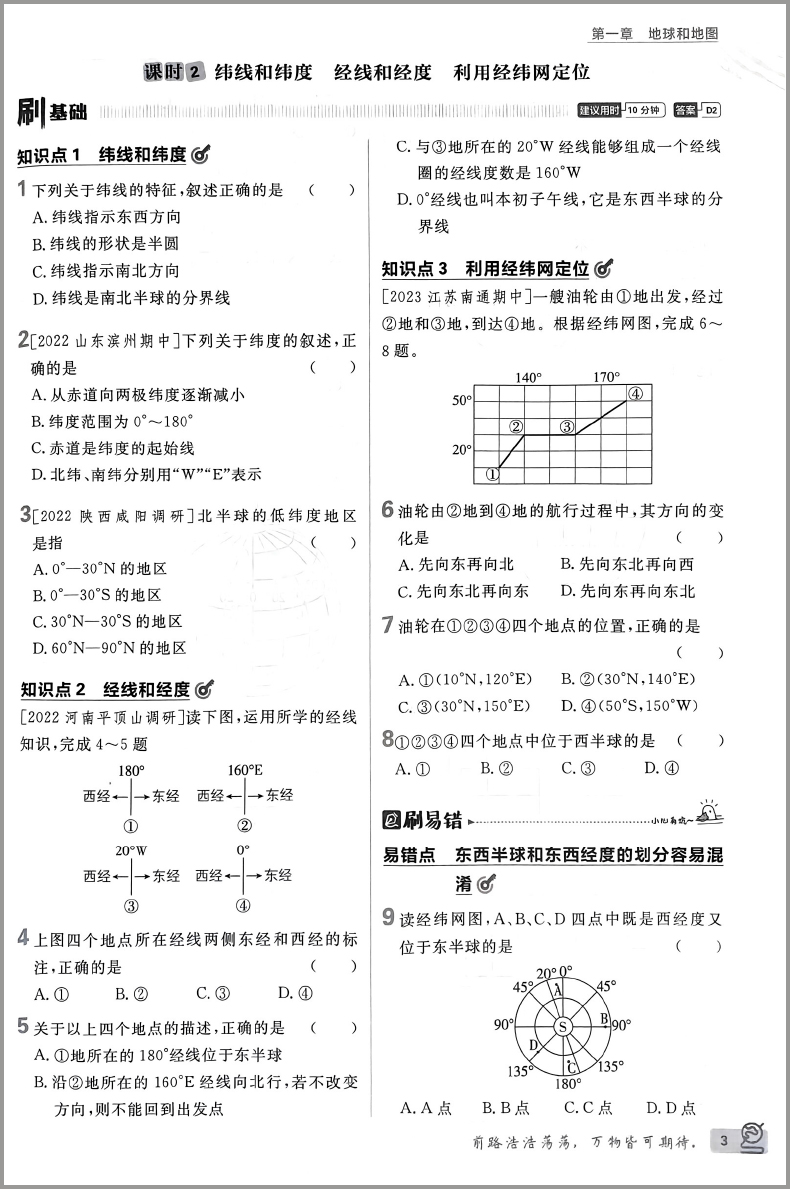 第一章 地球和地图
课时2 纬线和纬度 经线和经度 利用经纬网定位
刷基础
建议用时 10分钟 答案 D2
知识点1 纬线和纬度
1 下列关于纬线的特征,叙述正确的是 ( )
A. 纬线指示东西方向
B. 纬线的形状是半圆
C. 纬线指示南北方向
D. 纬线是南北半球的分界线
2 [2022山东滨州期中]下列关于纬度的叙述,正
确的是 ( )
A. 从赤道向两极纬度逐渐减小
B. 纬度范围为0°～180°
C. 赤道是纬度的起始线
D. 北纬、南纬分别用“W”“E”表示
3 [2022陕西咸阳调研]北半球的低纬度地区
是指 ( )
A. 0°—30°N的地区
B. 0°—30°S的地区
C. 30°N—30°S的地区
D. 60°N—90°N的地区
知识点2 经线和经度
[2022河南平顶山调研]读下图,运用所学的经线
知识,完成4～5题
180° 160°E
西经 东经 西经 东经
① ②
20°W 0°
西经 东经 西经 东经
③ ④
4 上图四个地点所在经线两侧东经和西经的标
注,正确的是 ( )
A. ① B. ② C. ③ D. ④
5 关于以上四个地点的描述,正确的是 ( )
A. ①地所在的180°经线位于东半球
B. 沿②地所在的160°E经线向北行,若不改变
方向,则不能回到出发点
C. 与③地所在的20°W经线能够组成一个经线
圈的经线度数是160°W
D. 0°经线也叫本初子午线,它是东西半球的分
界线
知识点3 利用经纬网定位
[2023江苏南通期中]一艘油轮由①地出发,经过
②地和③地,到达④地。根据经纬网图,完成6～
8题。
140° 170°
50° ④
② ③
20°
①
6 油轮由②地到④地的航行过程中,其方向的变
化是 ( )
A. 先向东再向北 B. 先向东北再向西
C. 先向东北再向东 D. 先向东再向东北
7 油轮在①②③④四个地点的位置,正确的是
( )
A. ①(10°N,120°E) B. ②(30°N,140°E)
C. ③(30°N,150°E) D. ④(50°S,150°W)
8 ①②③④四个地点中位于西半球的是 ( )
A. ① B. ② C. ③ D. ④
刷易错
易错点 东西半球和东西经度的划分容易混
淆
9 读经纬网图,A、B、C、D四点中既是西经度又
位于东半球的是 ( )
20° 0°
45° A 45°
90° S B 90°
D
135° C 135°
180°
A. A点 B. B点 C. C点 D. D点
前路浩浩荡荡,万物皆可期待。 3